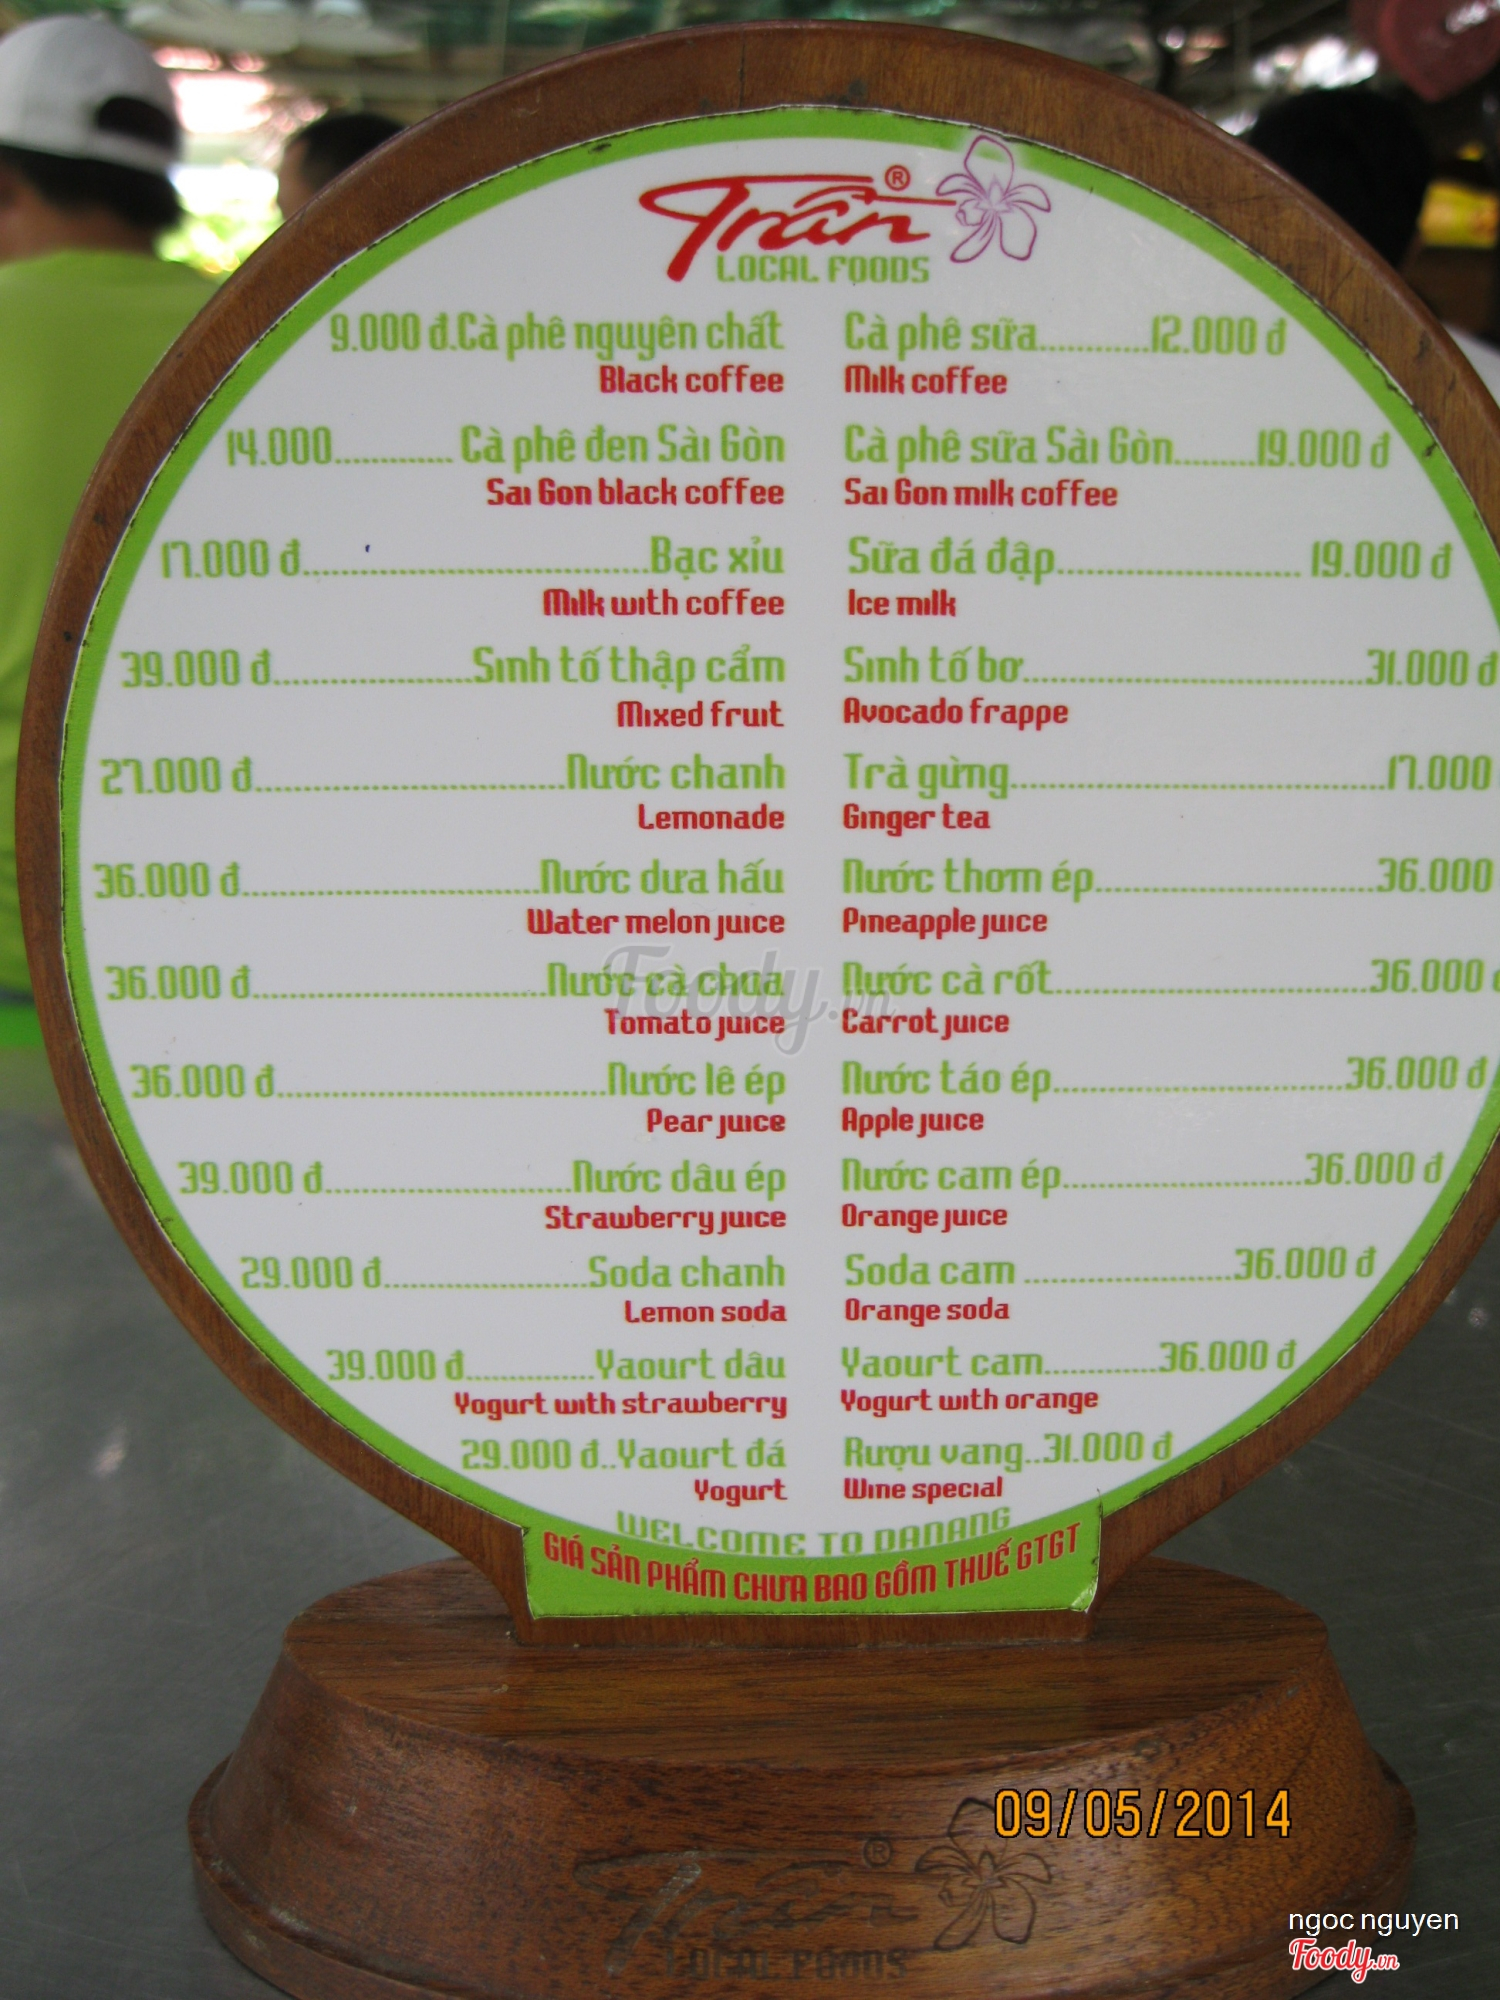 Trần ®
LOCAL FOODS
9.000 đ.Cà phê nguyên chất
Black coffee
14.000............ Cà phê đen Sài Gòn
Sai Gon black coffee
17.000 đ...................................Bạc xỉu
Milk with coffee
39.000 đ....................Sinh tố thập cẩm
Mixed fruit
27.000 đ...............................Nước chanh
Lemonade
36.000 đ..............................Nước dưa hấu
Water melon juice
36.000 đ..............................Nước cà chua
Tomato juice
36.000 đ.................................Nước lê ép
Pear juice
39.000 đ.........................Nước dâu ép
Strawberry juice
29.000 đ.....................Soda chanh
Lemon soda
39.000 đ.............Yaourt dâu
Yogurt with strawberry
29.000 đ..Yaourt đá
Yogurt
Cà phê sữa...........12.000 đ
Milk coffee
Cà phê sữa Sài Gòn.........19.000 đ
Sai Gon milk coffee
Sữa đá đập......................... 19.000 đ
Ice milk
Sinh tố bơ...................................31.000 đ
Avocado frappe
Trà gừng......................................17.000
Ginger tea
Nước thơm ép............................36.000
Pineapple juice
Nước cà rốt................................36.000 đ
Carrot juice
Nước táo ép.............................36.000 đ
Apple juice
Nước cam ép........................36.000 đ
Orange juice
Soda cam .....................36.000 đ
Orange soda
Yaourt cam............36.000 đ
Yogurt with orange
Rượu vang..31.000 đ
Wine special
WELCOME TO DANANG
GIÁ SẢN PHẨM CHƯA BAO GỒM THUẾ GTGT
Foody.vn
09/05/2014
Trần ®
LOCAL FOODS
ngoc nguyen
Foody.vn